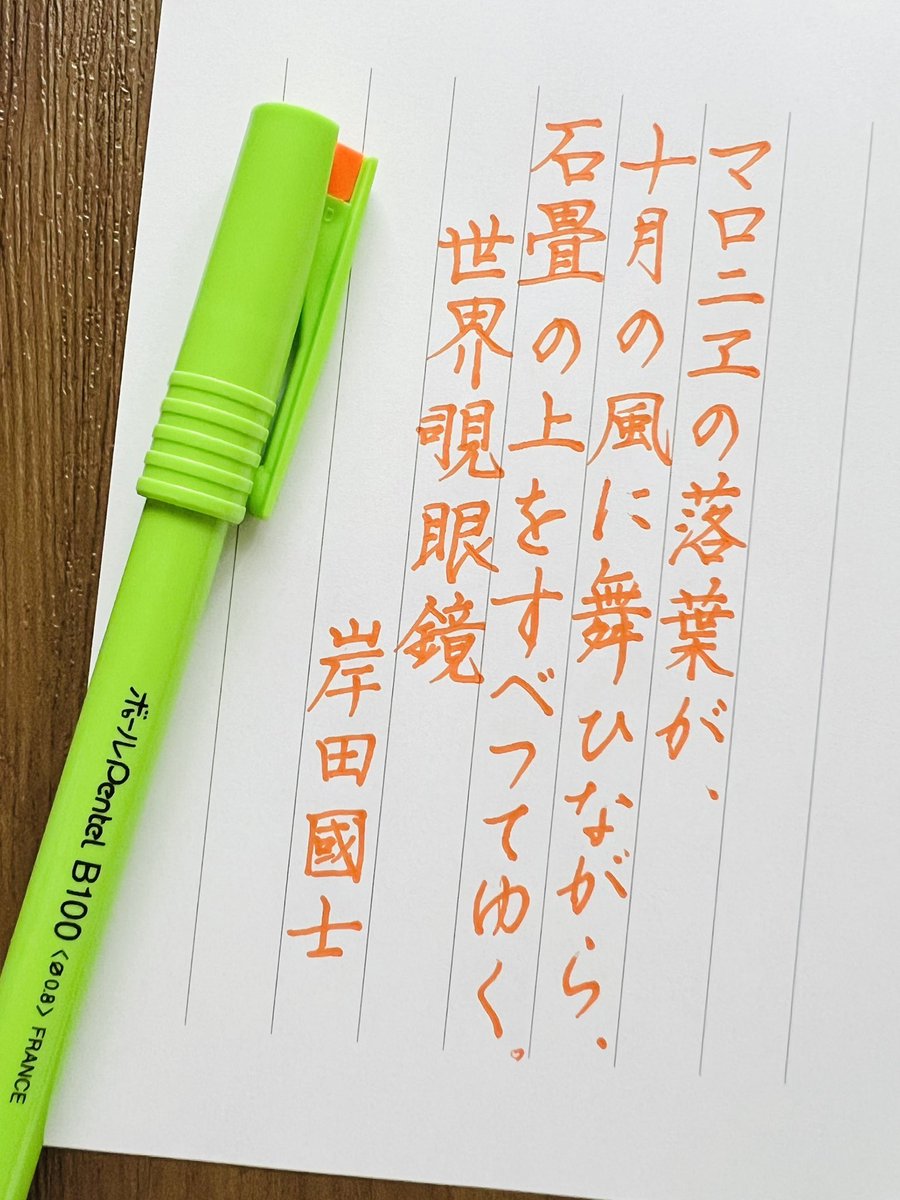 マロニヱの落葉が、
十月の風に舞ひながら、
石畳の上をすべつてゆく。
世界覗眼鏡
岸田國士
ボールPentel B100 〈⌀0.8〉 FRANCE